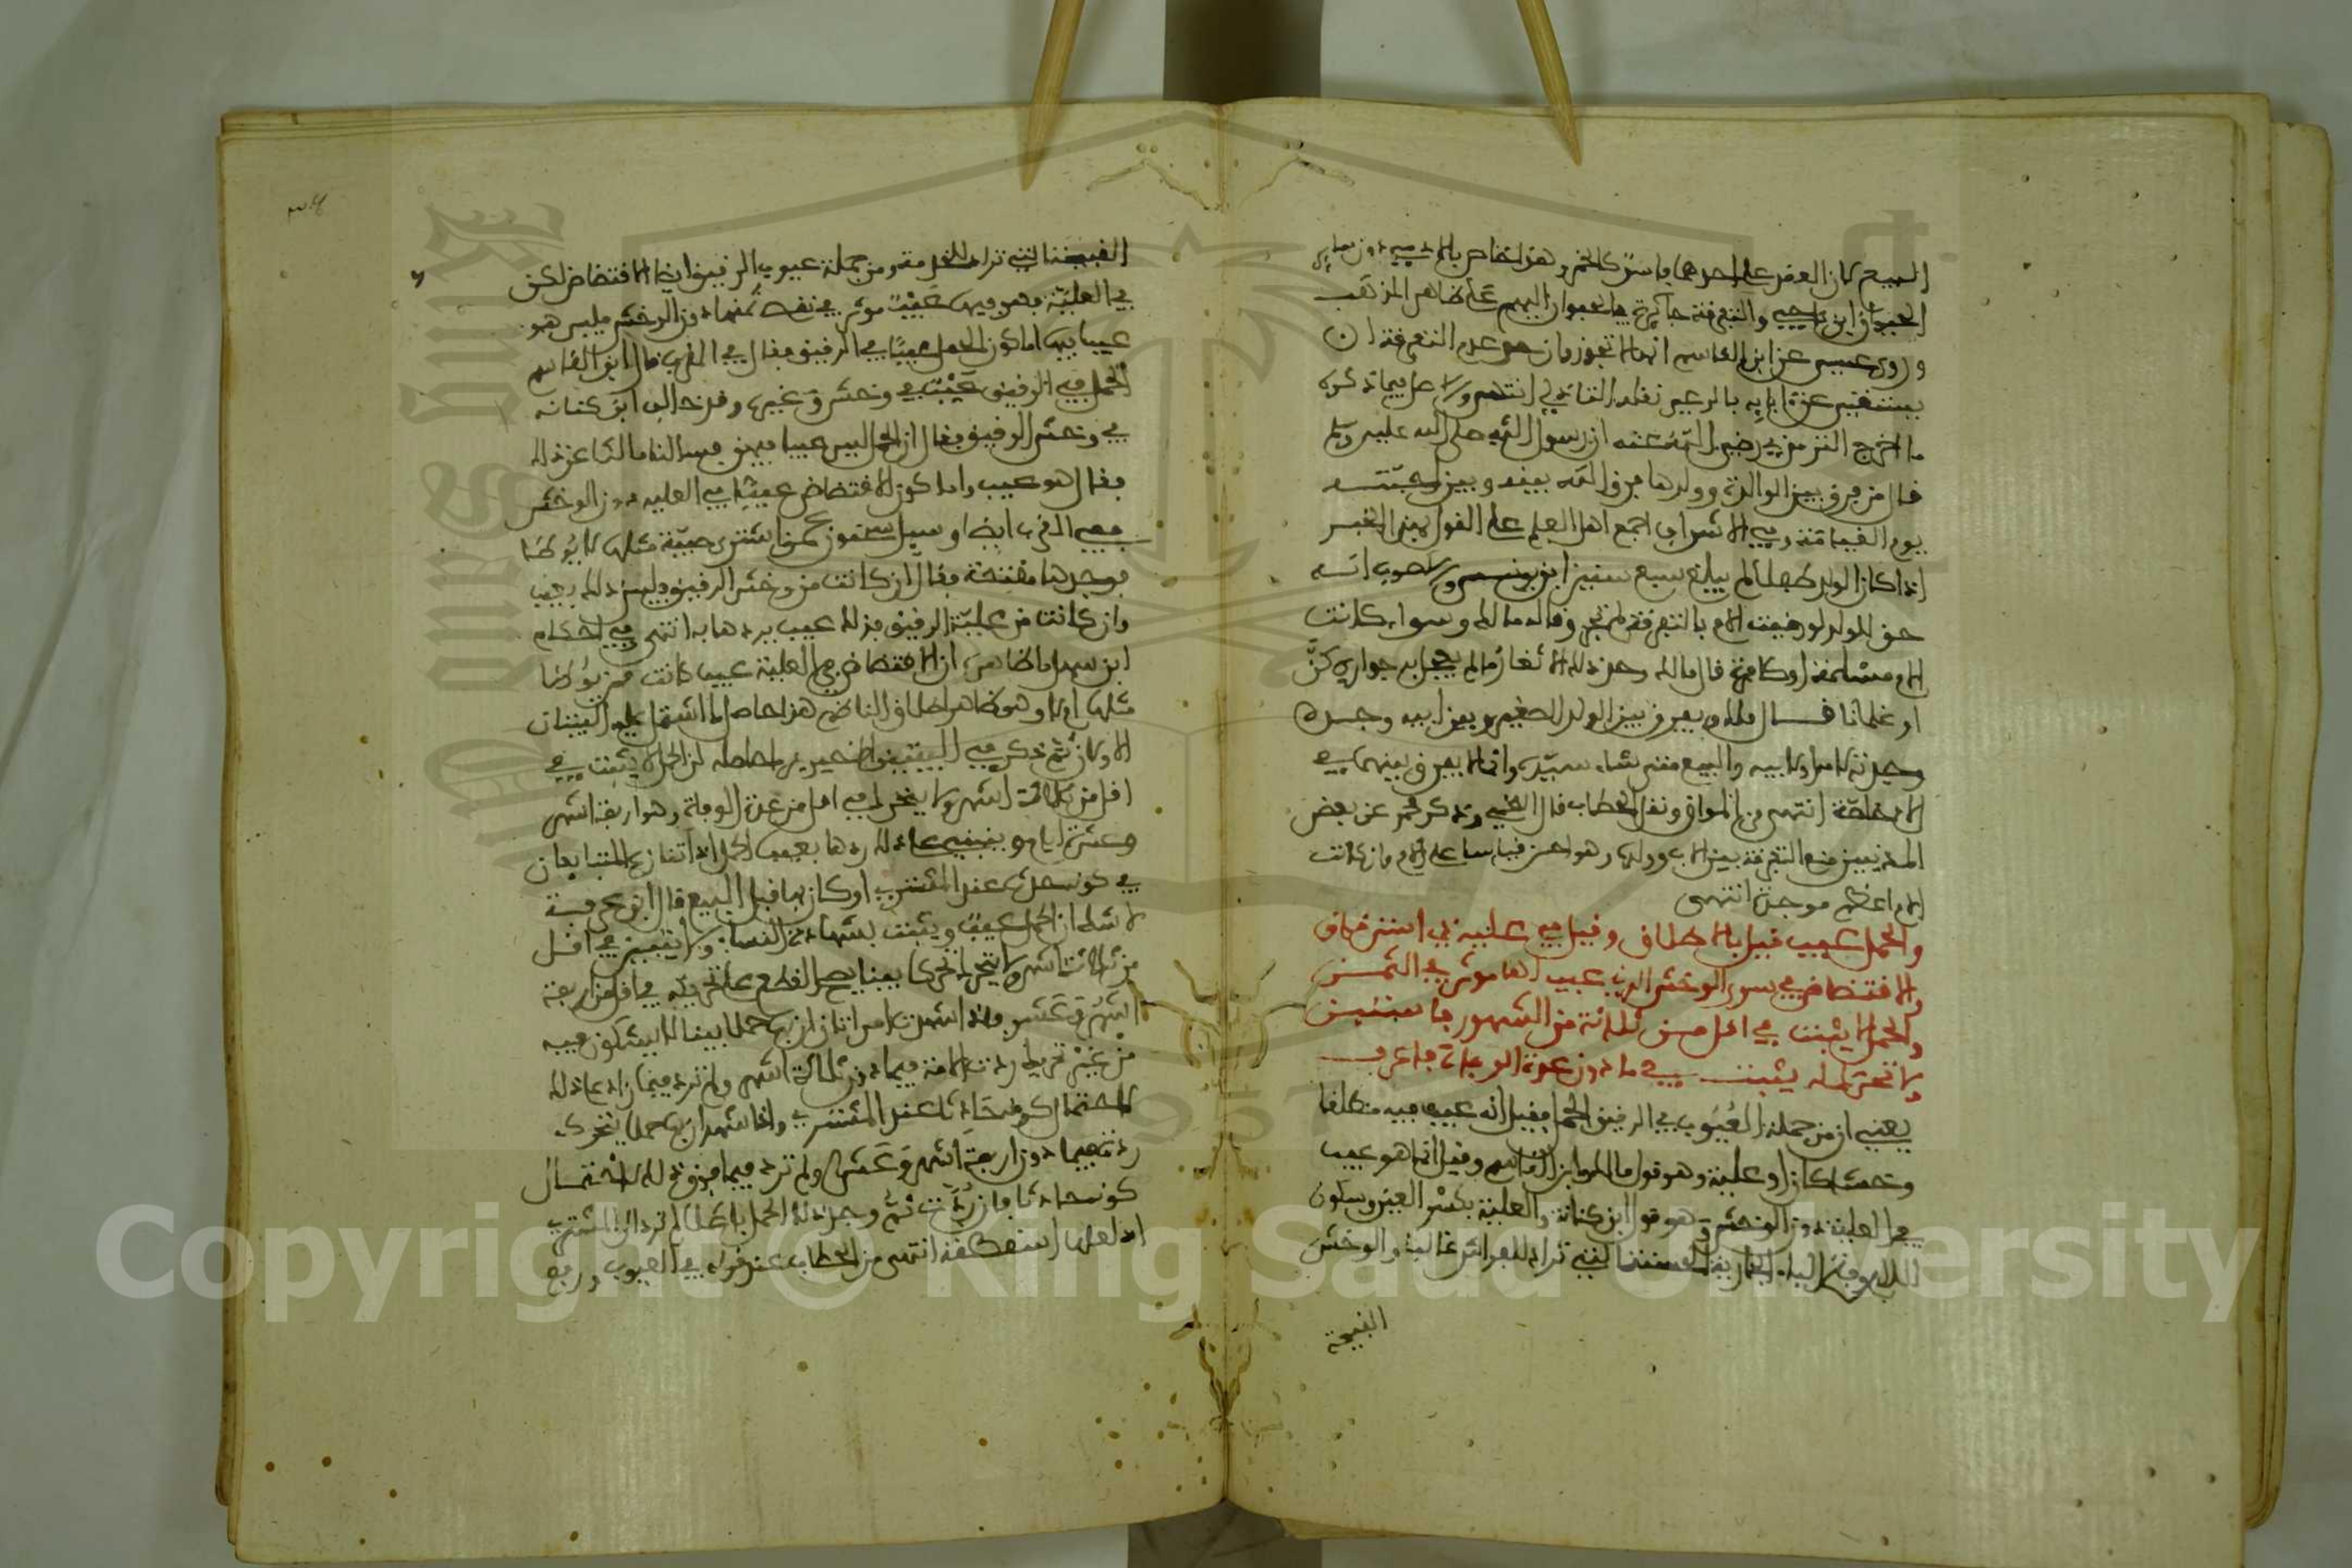 البيع كان العقد على احدهما فاسدا كالخمر وهذا خاص بالادمي دون سائر
الحيوان ابن ناجي والتفرقة جائزة في الحيوان البهيم على ظاهر المذهب
وروى عيسى عن ابن القاسم انها لا تجوز وان حد عدم التفرقة ان
يستغني عن ابايه بالرعي نقله التاذلي انتهى والاصل فيما ذكره
ما اخرج الترمذي رضي الله عنه ان رسول الله صلى الله عليه وسلم
قال من فرق بين الوالدة وولدها فرق الله بينه وبين احبته
يوم القيامة وفي الاشراف اجمع اهل العلم على القول بهذا الخبر
اذا كان الولد طفلا لم يبلغ سبع سنين ابن يونس والصواب انه
حق للولد لو رضيت الام بالتفرقة لم تجز وقاله مالك وسواء كانت
الام مسلمة او كافرة قال مالك
او غلمانا قال مالك ويفرق بين الولد الصغير وبين ابيه وجده
وجدته لامه او لابيه والبيع متى شاء سيده وانما لا يفرق بينه وبين
الام خاصة انتهى من المواق ونقل الحطاب قال اللخمي وذكر محمد عن بعض
المدنيين منع التفرقة بين الاب وولده وهو احسن قياسا على الام وان كانت
الام اعظم موجدة انتهى
والحمل عيب قيل بالاطلاق وقيل في علية ذي استرقاق
والافتضاض في سوى الوخش الدني عيب لها موثر في الثمن
والحمل لا يثبت في اقل من ثلاثة من الشهور فاستبن
ولا تحرك له يثبت في ما دون عدة الوفاة فاعرف
يعني ان من جملة العيوب في الرقيق الحمل فقيل انه عيب فيه مطلقا
وخشا كان او علية وهو قول مالك وابن القاسم وقيل انما هو عيب
في العلية دون الوخش وهو قول ابن كنانة والعلية بكسر العين وسكون
اللام وفتح الياء الجارية الحسنة التي تراد للفراش غالبا والوخش
القبيحة
القبيحة التي تراد للخدمة ومن جملة عيوب الرقيق ايضا الافتضاض لكن
في العلية فهو فيها عيب موثر في نقص ثمنها دون الوخش فليس هو
عيبا فيها اما كون الحمل عيبا في الرقيق فقال في المقرب قال ابن القاسم
الحمل في الرقيق عيب في وخش وغيره وقد خالف ابن كنانة
في وخش الرقيق فقال ان الحمل ليس عيبا فيهن وسالنا مالكا عن ذلك
فقال هو عيب واما كون الافتضاض عيبا في العلية دون الوخش
ففي المقرب ايضا وسيل سحنون عمن اشترى صبية مثلها لا يوطا
فوجدها مفتضة فقال ان كانت من وخش الرقيق فليس ذلك بعيب
وان كانت من علية الرقيق فذلك عيب يردها به انتهى وفي احكام
ابن سهل ما ظاهره ان الافتضاض في العلية عيب كانت ممن يوطا
مثلها ام لا وهو ظاهر اطلاق الناظم هذا حاصل ما اشتمل عليه البيتان
الاولان ثم ذكر في البيتين الاخيرين ما حاصله ان الحمل لا يثبت في
اقل من ثلاثة اشهر ولا يتحرك في اقل من عدة الوفاة وهو اربعة اشهر
وعشرة ايام وينبني على ذلك ردها بعيب الحمل اذا تنازع المتبايعان
في كونه حدث عند المشتري او كان بها قبل البيع قال ابن عرفة
لا شك ان الحمل عيب ويثبت بشهادة النساء ولا يتبين في اقل
من ثلاثة اشهر ولا يتحرك تحركا بينا يصح القطع على تحريكه في اقل من اربعة
اشهر وعشر فاذا شهدت امراتان ان بها حملا بينا لا يشكون فيه
من غير تحريك ردت الامة فيما دون ثلاثة اشهر ولم ترد فيما زاد على ذلك
لاحتمال كونه حادثا عند المشتري واذا شهدن ان بها حملا يتحرك
ردت فيما دون اربعة اشهر وعشر ولم ترد فيما فوق ذلك لاحتمال
كونه حادثا فان ردت ثم وجد ذلك الحمل باطلا لم ترد الى المشتري
اذ لعلها اسقطته انتهى من الحطاب عند قوله في العيوب ورفع